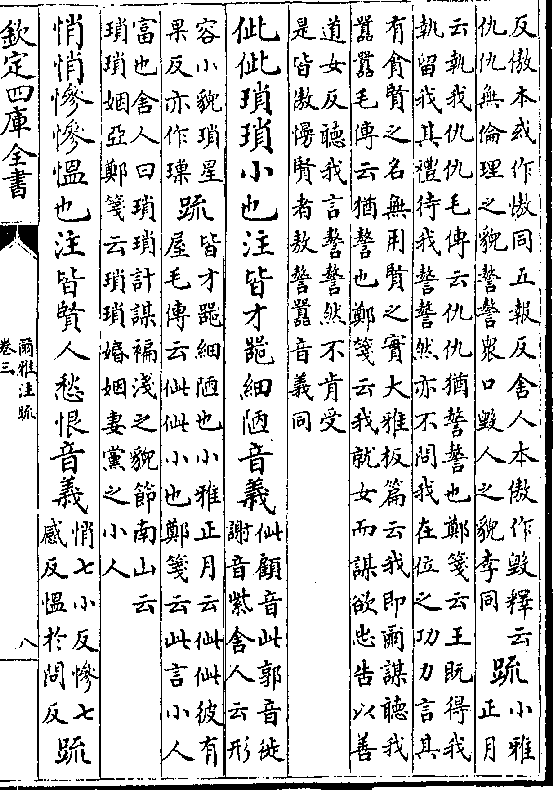 反傲本或作𢕟同五報反舍人本傲作毀釋云
仇仇無倫理之貌謷謷衆口毀人之貌李同
疏
小雅
正月
云執我仇仇毛傳云仇仇猶謷謷也鄭箋云王既得我
執留我其禮待我謷謷然亦不問我在位之功力言其
有貪賢之名無用賢之實大雅板篇云我即爾謀聽我
嚻嚻毛傳云猶謷也鄭箋云我就女而謀欲忠告以善
道女反聽我言謷謷然不肯受
是皆傲慢賢者敖謷嚻音義同
佌佌瑣瑣小也注皆才器細陋音義
佌顧音此郭音徙
謝音紫舍人云形
容小貌瑣星
果反亦作璅
疏
皆才器細陋也小雅正月云佌佌彼有
屋毛傳云佌佌小也鄭箋云此言小人
富也舍人曰瑣瑣計謀褊淺之貌節南山云
瑣瑣姻亞鄭箋云瑣瑣婚姻妻黨之小人
悄悄慘慘慍也注皆賢人愁恨音義
悄七小反慘七
感反慍於問反
疏
欽定四庫全書
爾雅注疏
卷三
八